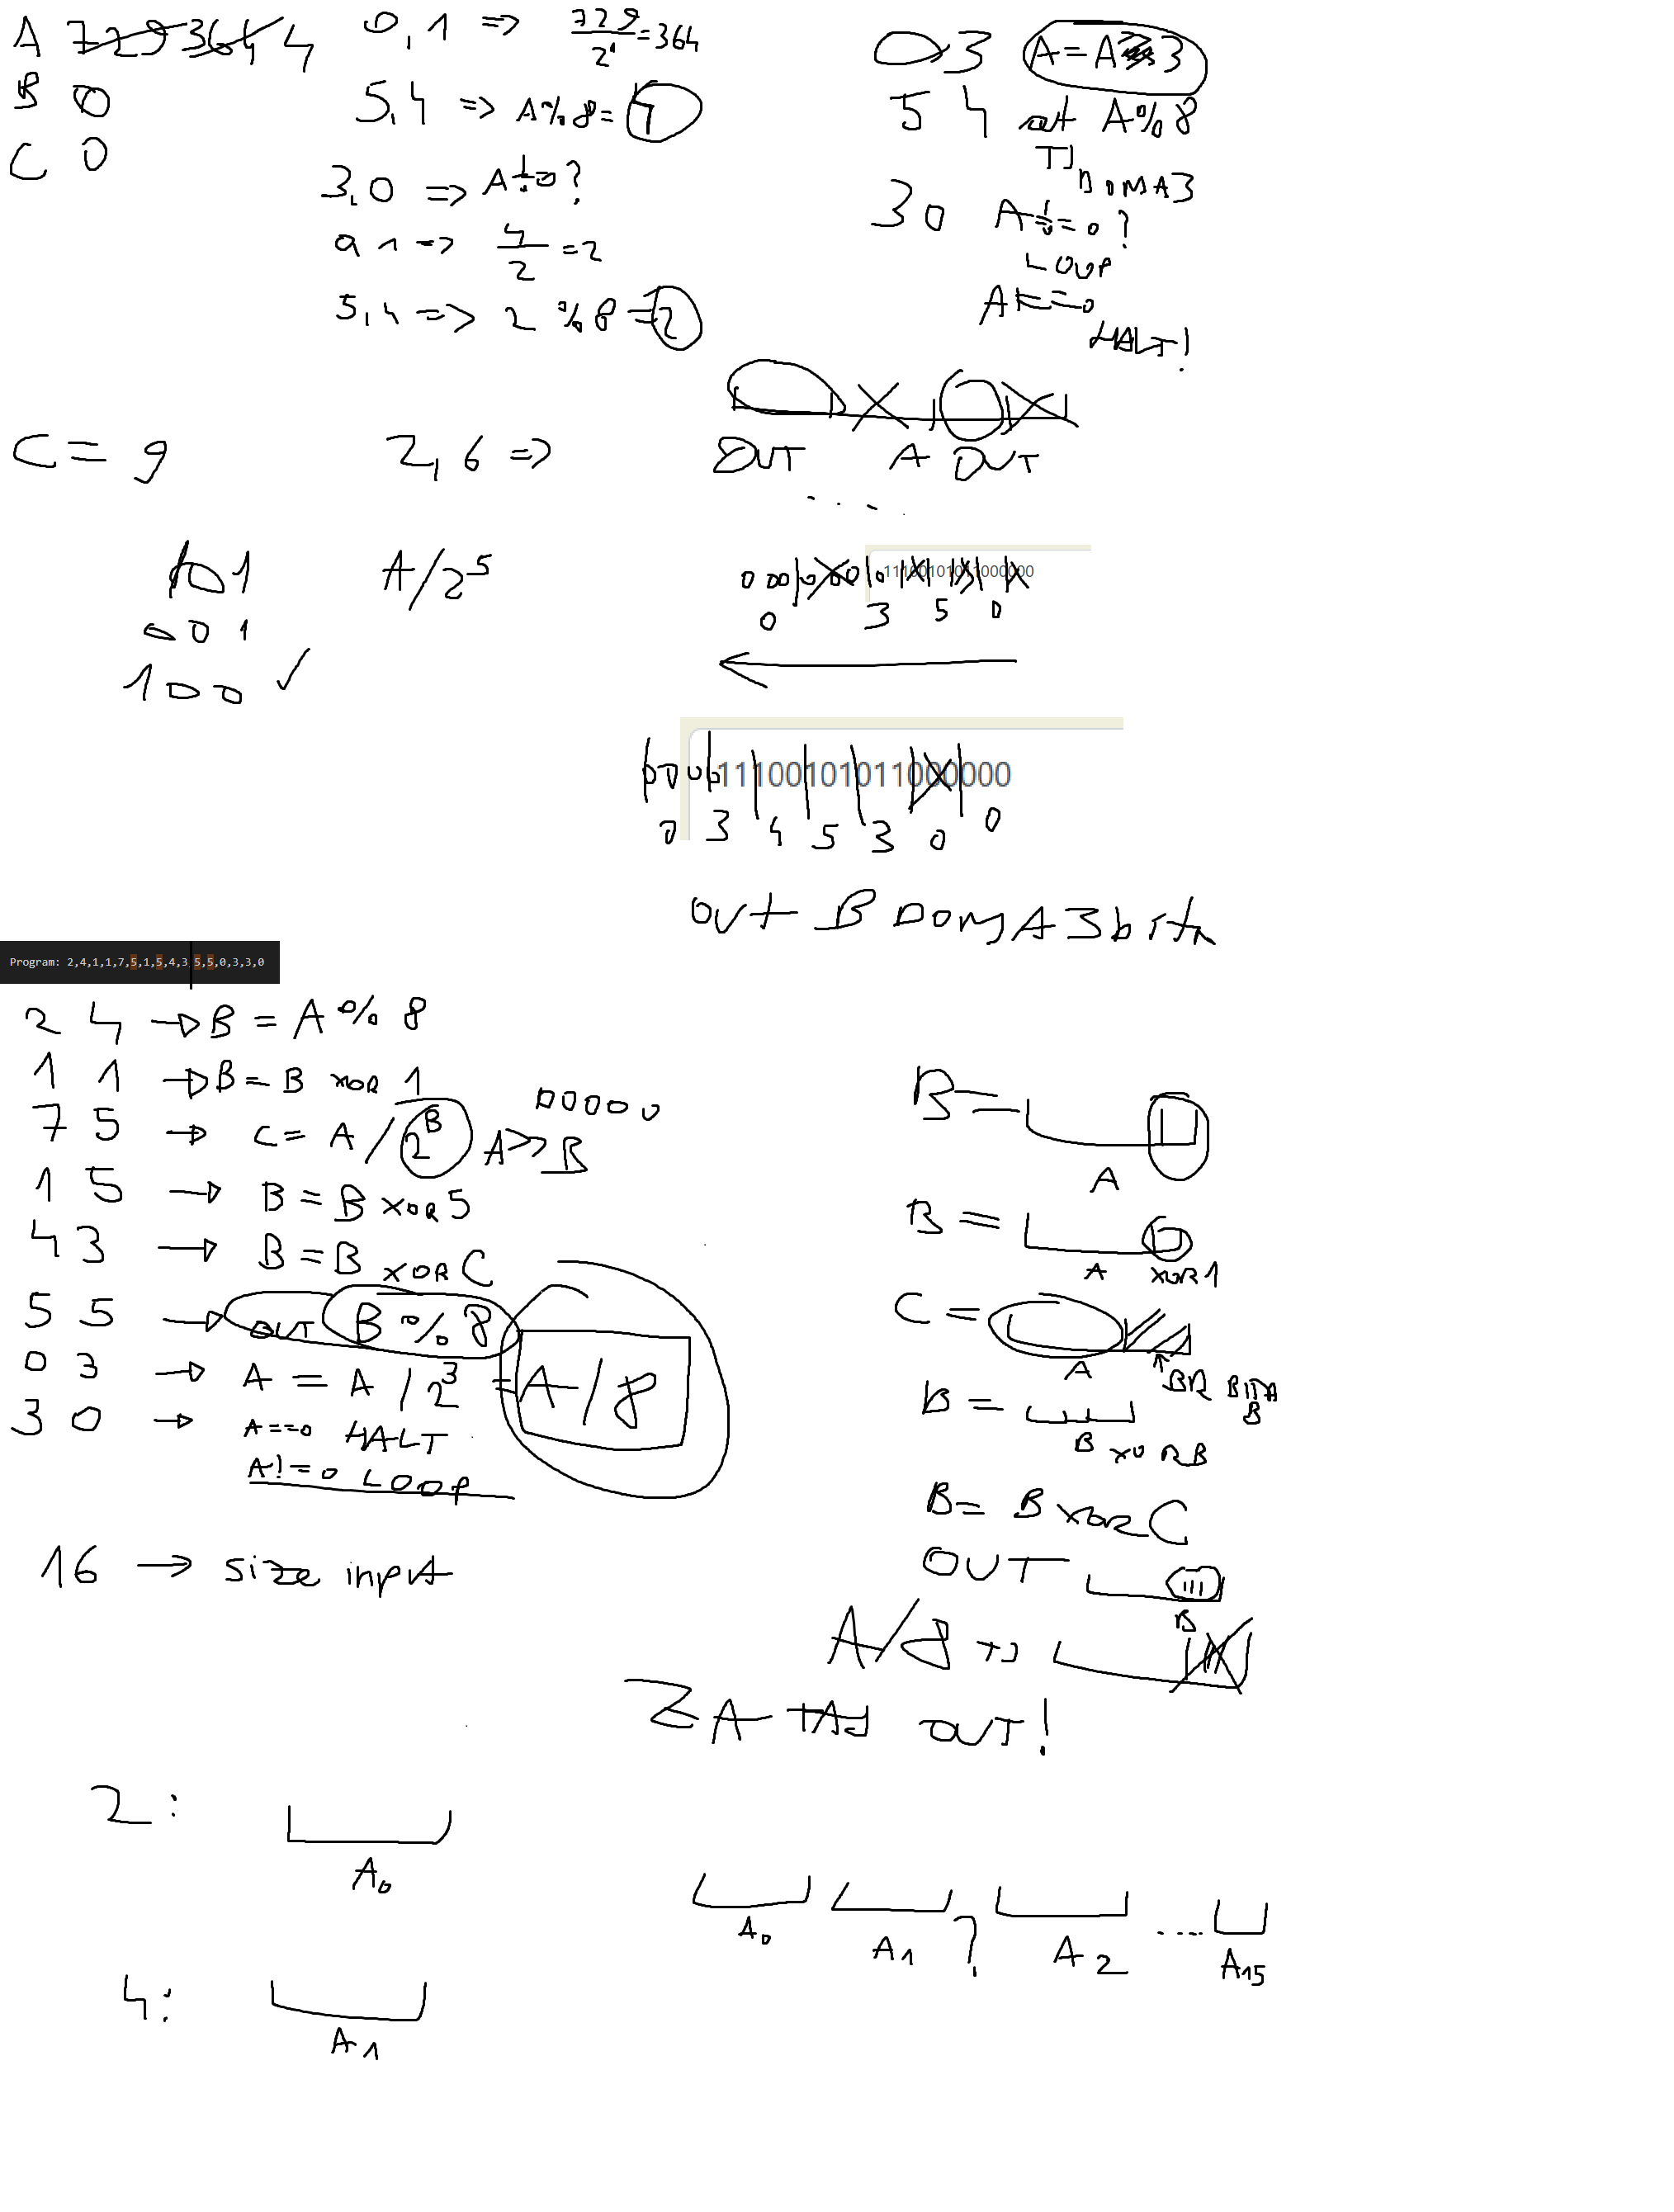 A 729 364 4
B 0
C 0
0,1 => 729/2¹ = 364
5,4 => A%8 = 4
3,0 => A != 0 ?
0 1 => 4/2 = 2
5,4 => 2 %8 = 2
0 3 A = A 3
5 4 out A%8
TJ
DONJA 3
3 0 A != 0 ?
LOOP
A == 0
HALT!
OUT A OUT
. . . .
C = 9
2,6 =>
101
001
100 ✓
A/2⁵
000 0 00 0 11100101011000000
0 3 5 0
00 00 11100101011000000
0 3 4 5 3 0 0
OUT B DONJA 3 bita
Program: 2,4,1,1,7,5,1,5,4,3,5,5,0,3,3,0
2 4 → B = A % 8
1 1 → B = B XOR 1
7 5 → C = A / 2ᴮ A >> B
00000
1 5 → B = B XOR 5
4 3 → B = B XOR C
5 5 → OUT B % 8
0 3 → A = A / 2³ = A/8
3 0 → A==0 HALT
A!=0 LOOP
16 → size input
B =
A
B =
A XOR 1
C =
A BR BITA
B
B =
B XOR B
B = B XOR C
OUT
B
A/8 TJ
ZA TAJ OUT!
2:
A₀
4:
A₁
A₀ A₁ ? A₂ .... A₁₅